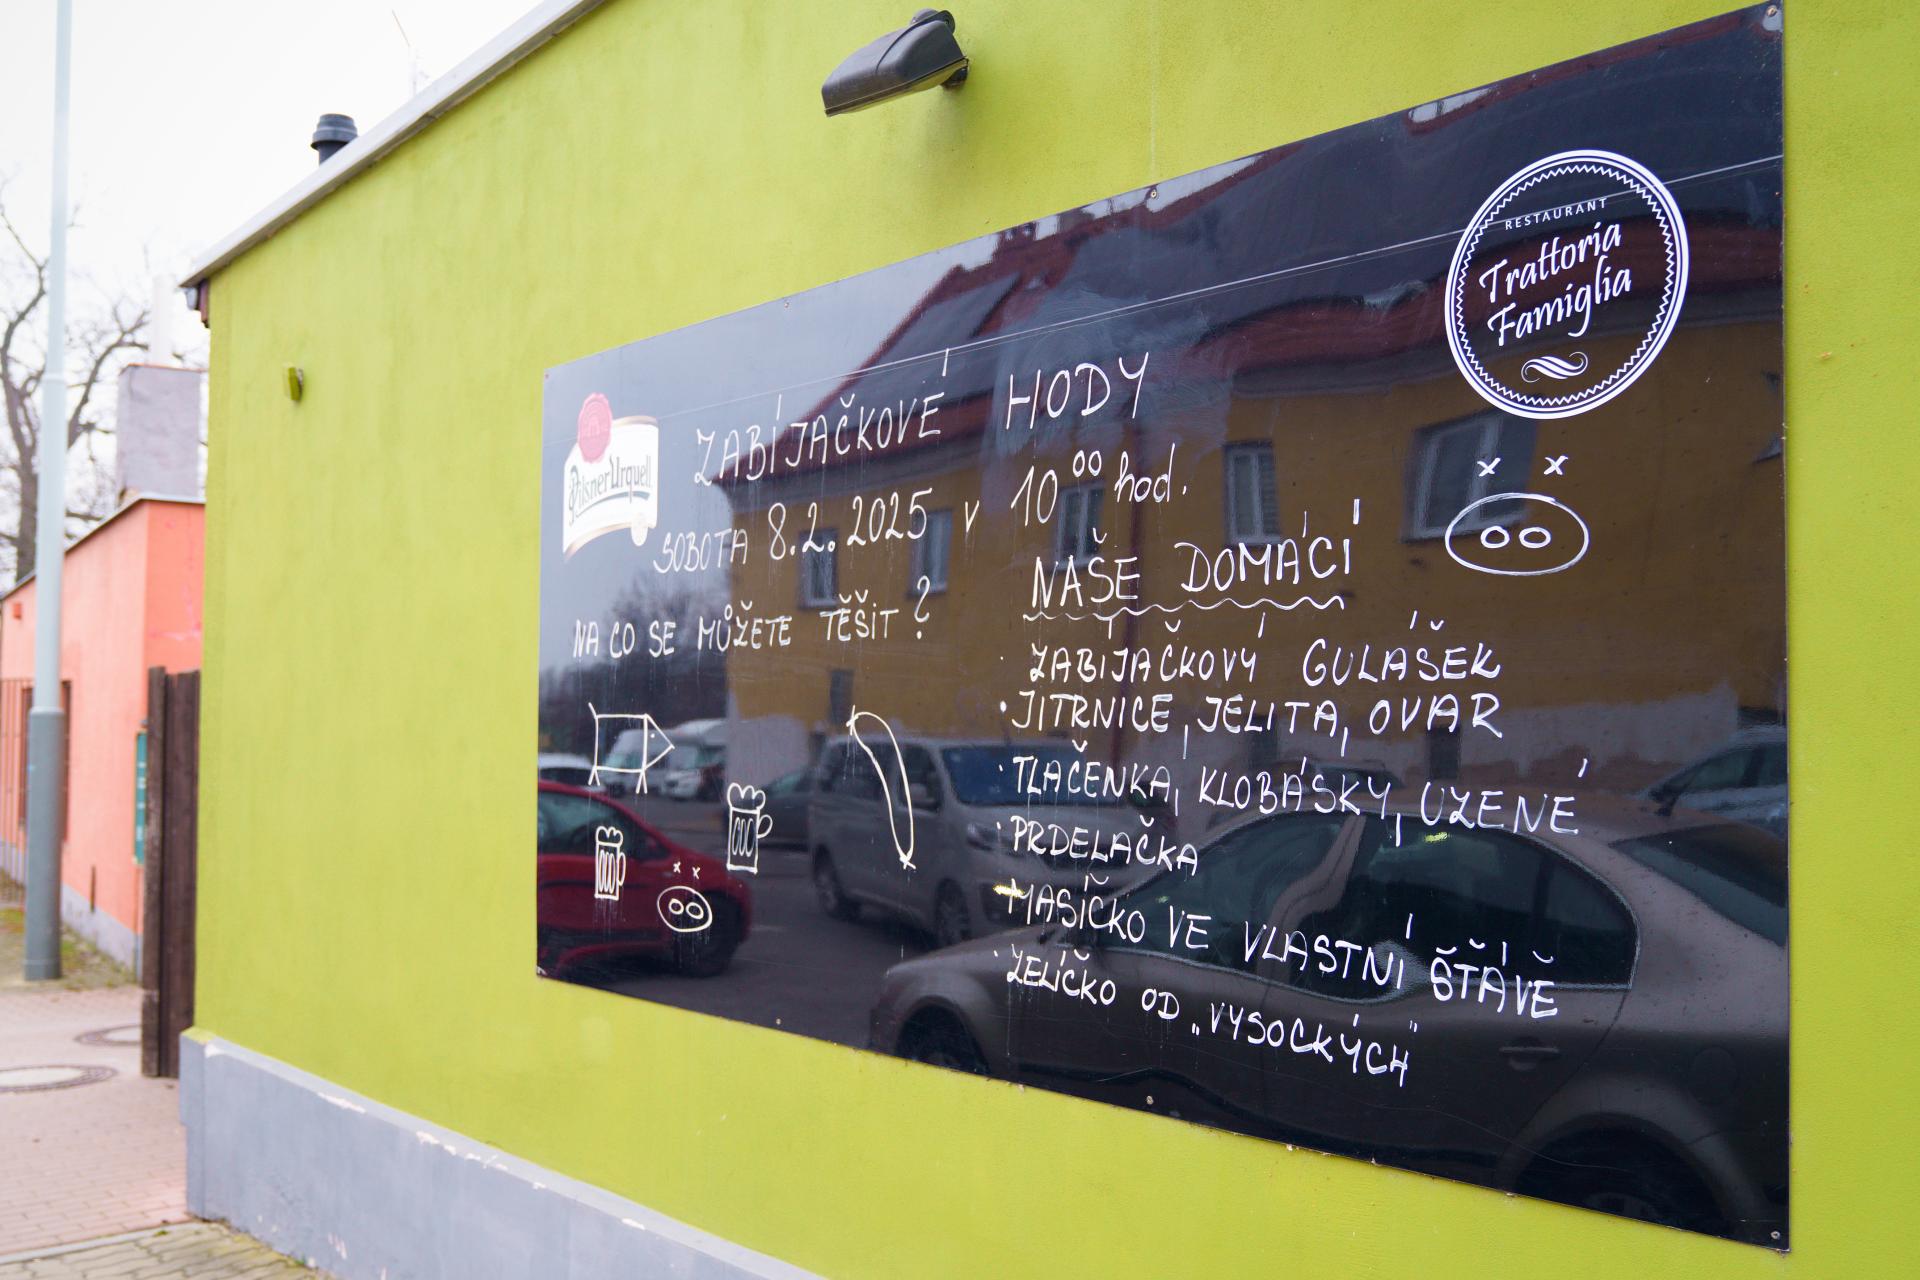 RESTAURANT
Trattoria
Famiglia
Pilsner Urquell
ZABÍJAČKOVÉ HODY
SOBOTA 8.2.2025 v 10⁰⁰ hod.
NA CO SE MŮŽETE TĚŠIT?
NAŠE DOMÁCÍ
· ZABÍJAČKOVÝ GULÁŠEK
· JITRNICE, JELITA, OVAR
· TLAČENKA, KLOBÁSKY, UZENÉ
· PRDELAČKA
· MASÍČKO VE VLASTNÍ ŠŤÁVĚ
· ZELÍČKO OD „VYSOCKÝCH"